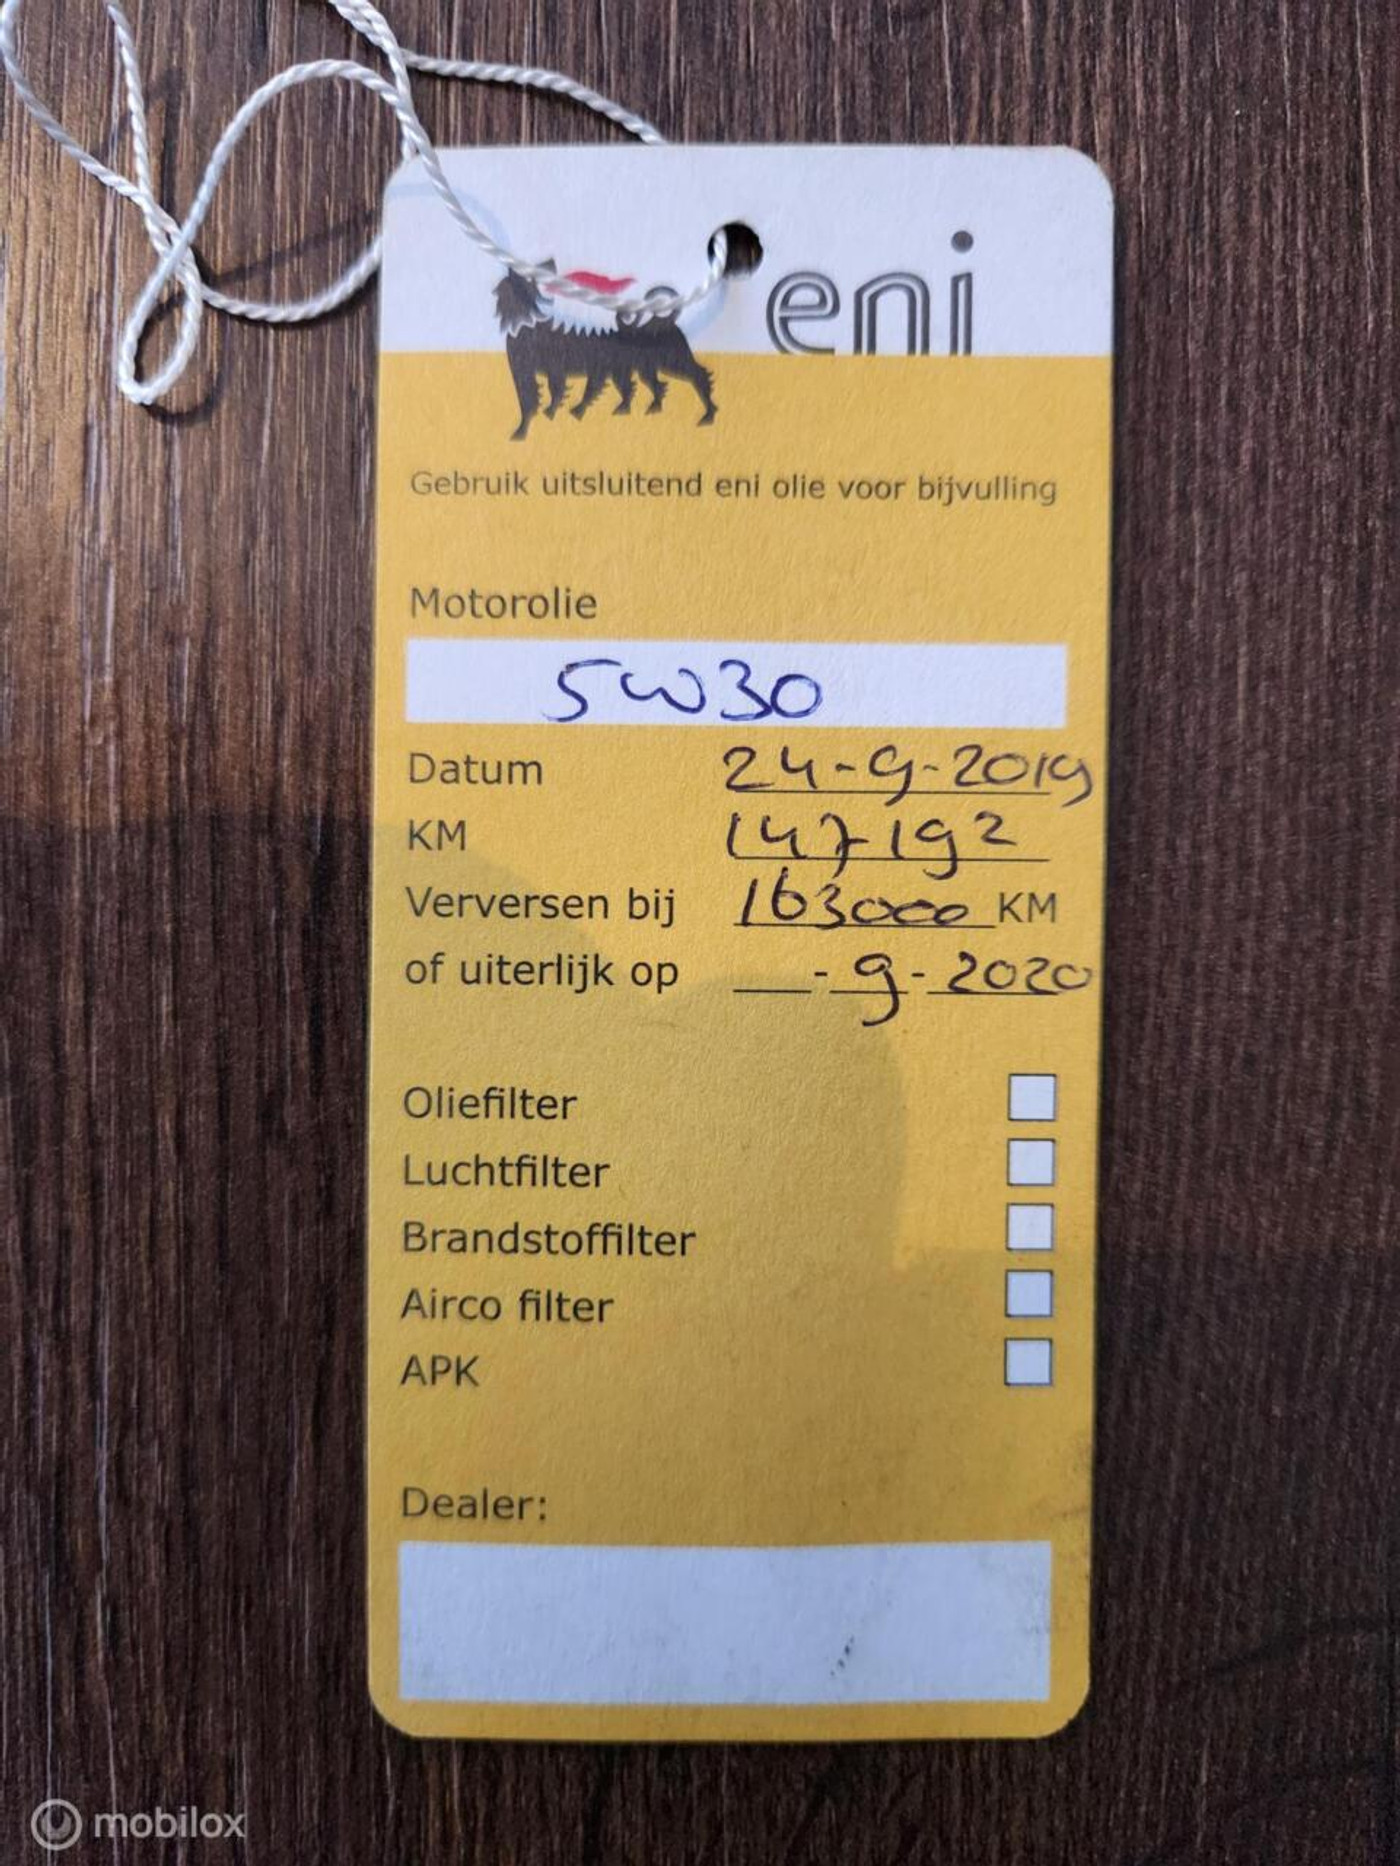 eni
Gebruik uitsluitend eni olie voor bijvulling
Motorolie
5W30
Datum 24-9-2019
KM 147192
Verversen bij 163000 KM
of uiterlijk op -9-2020
Oliefilter
Luchtfilter
Brandstoffilter
Airco filter
APK
Dealer:
mobilox